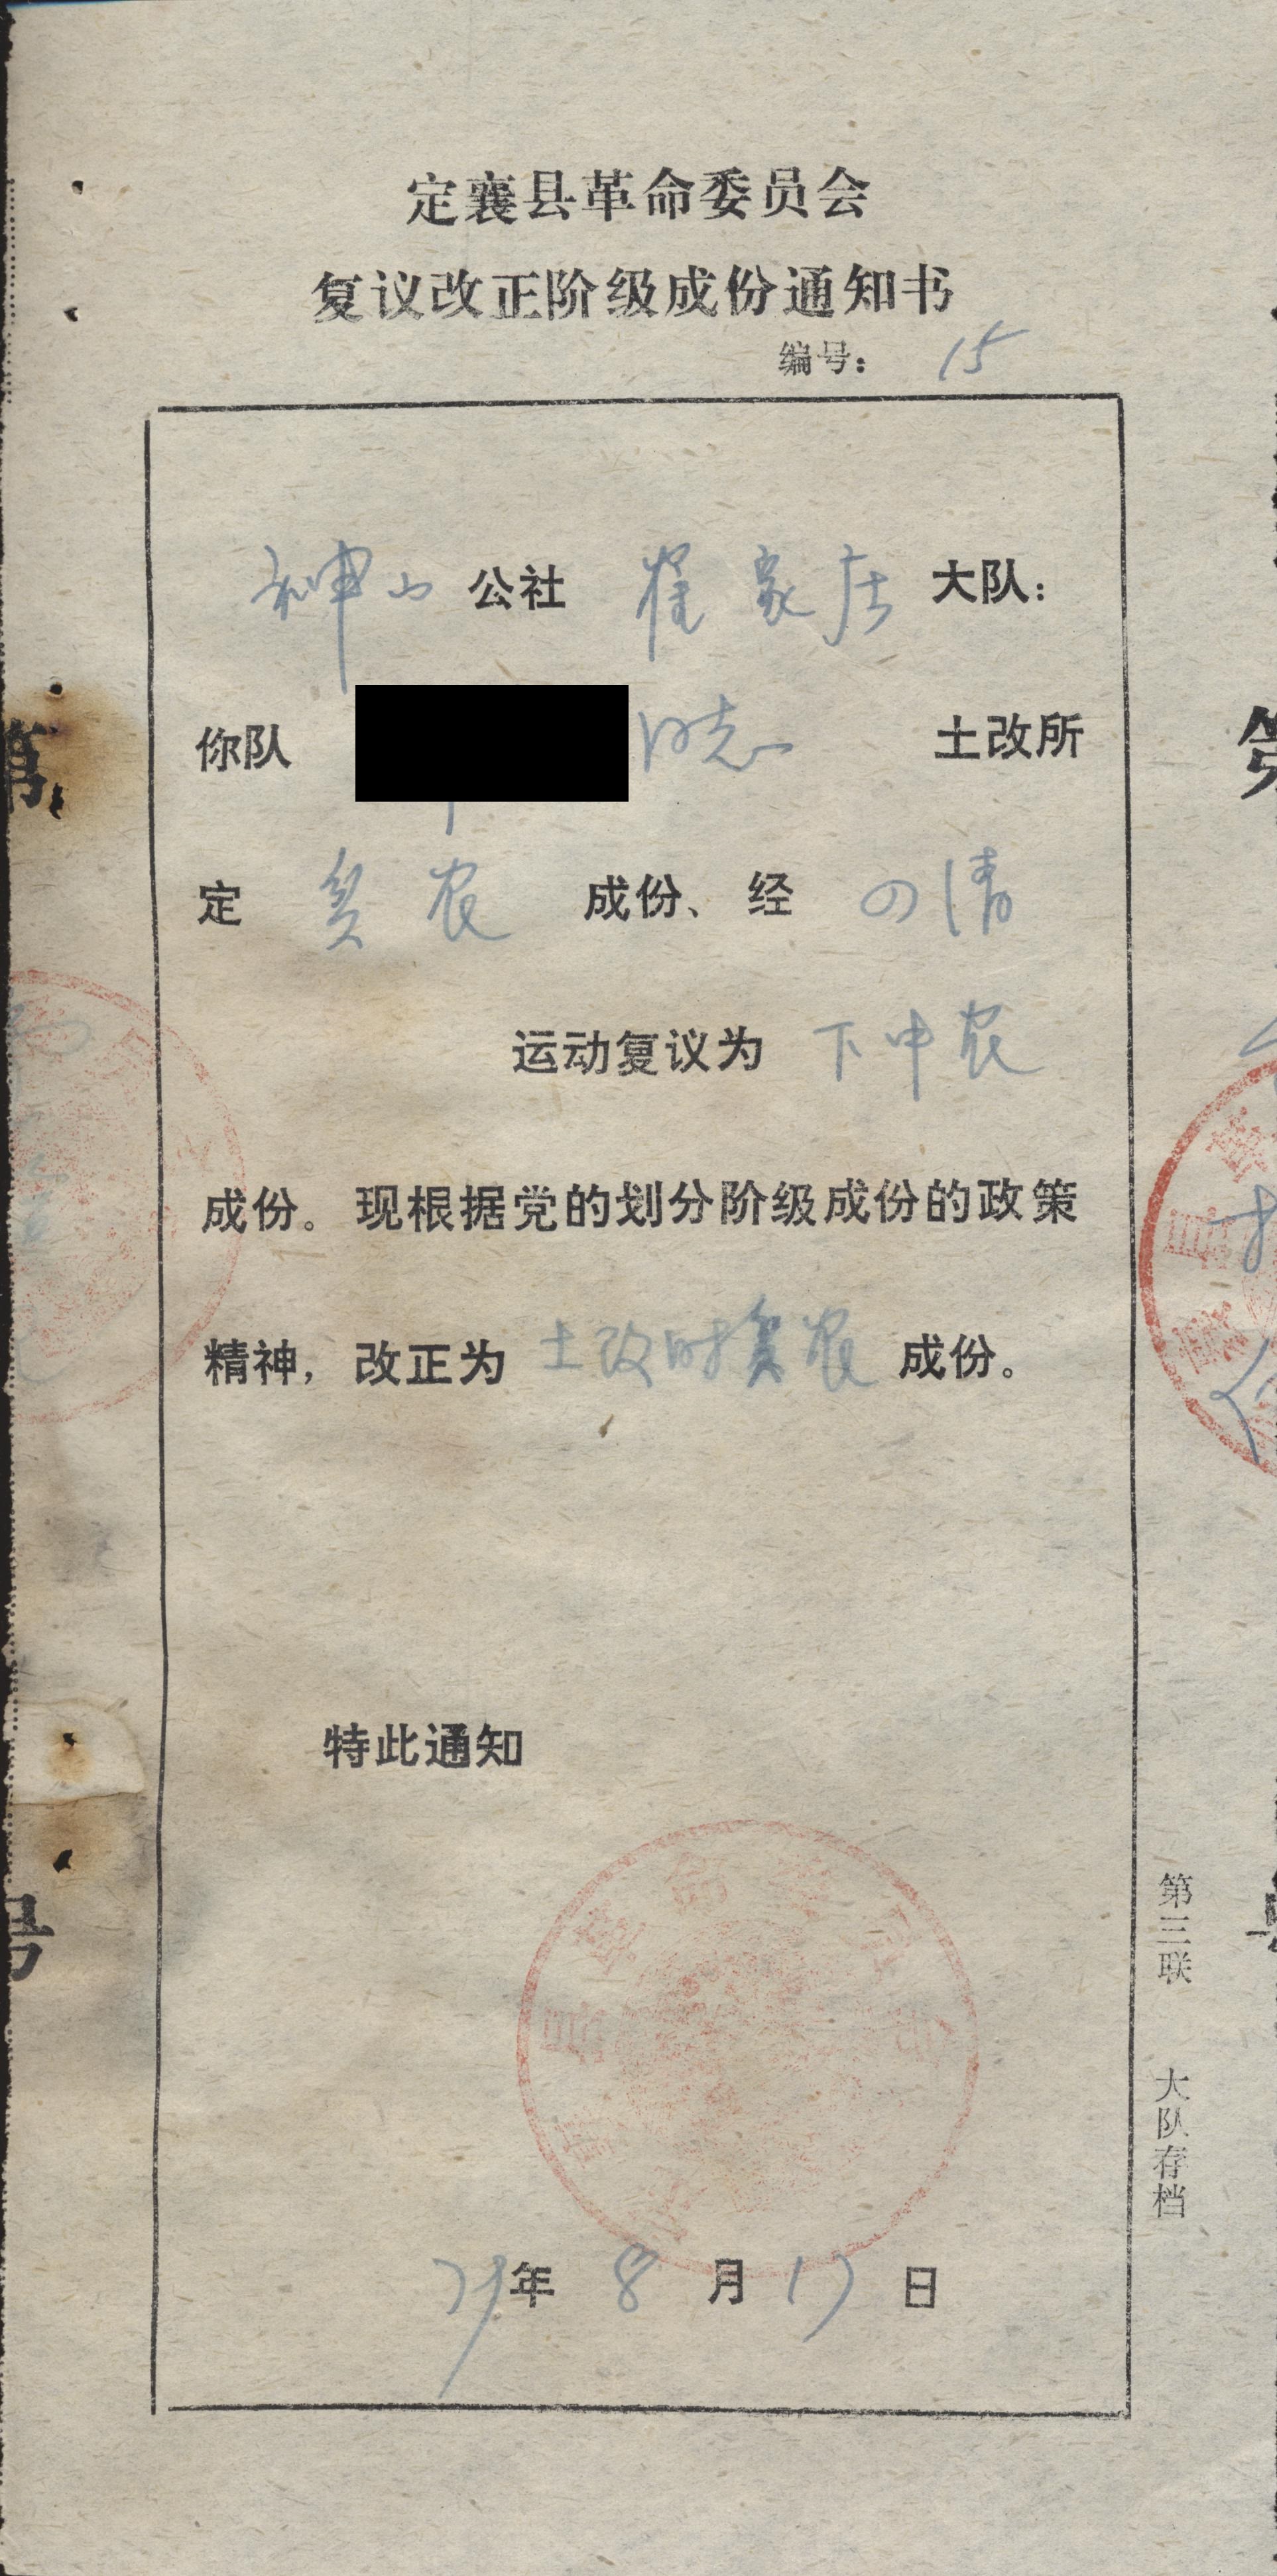 定襄县革命委员会
复议改正阶级成份通知书
编号： 15
神山 公社 崔家庄 大队：
你队 同志 土改所
定 贫农 成份、经 四清
运动复议为 下中农
成份。现根据党的划分阶级成份的政策
精神，改正为 土改时贫农 成份。
特此通知
79年 8 月 17 日
第三联 大队存档
第
号
第